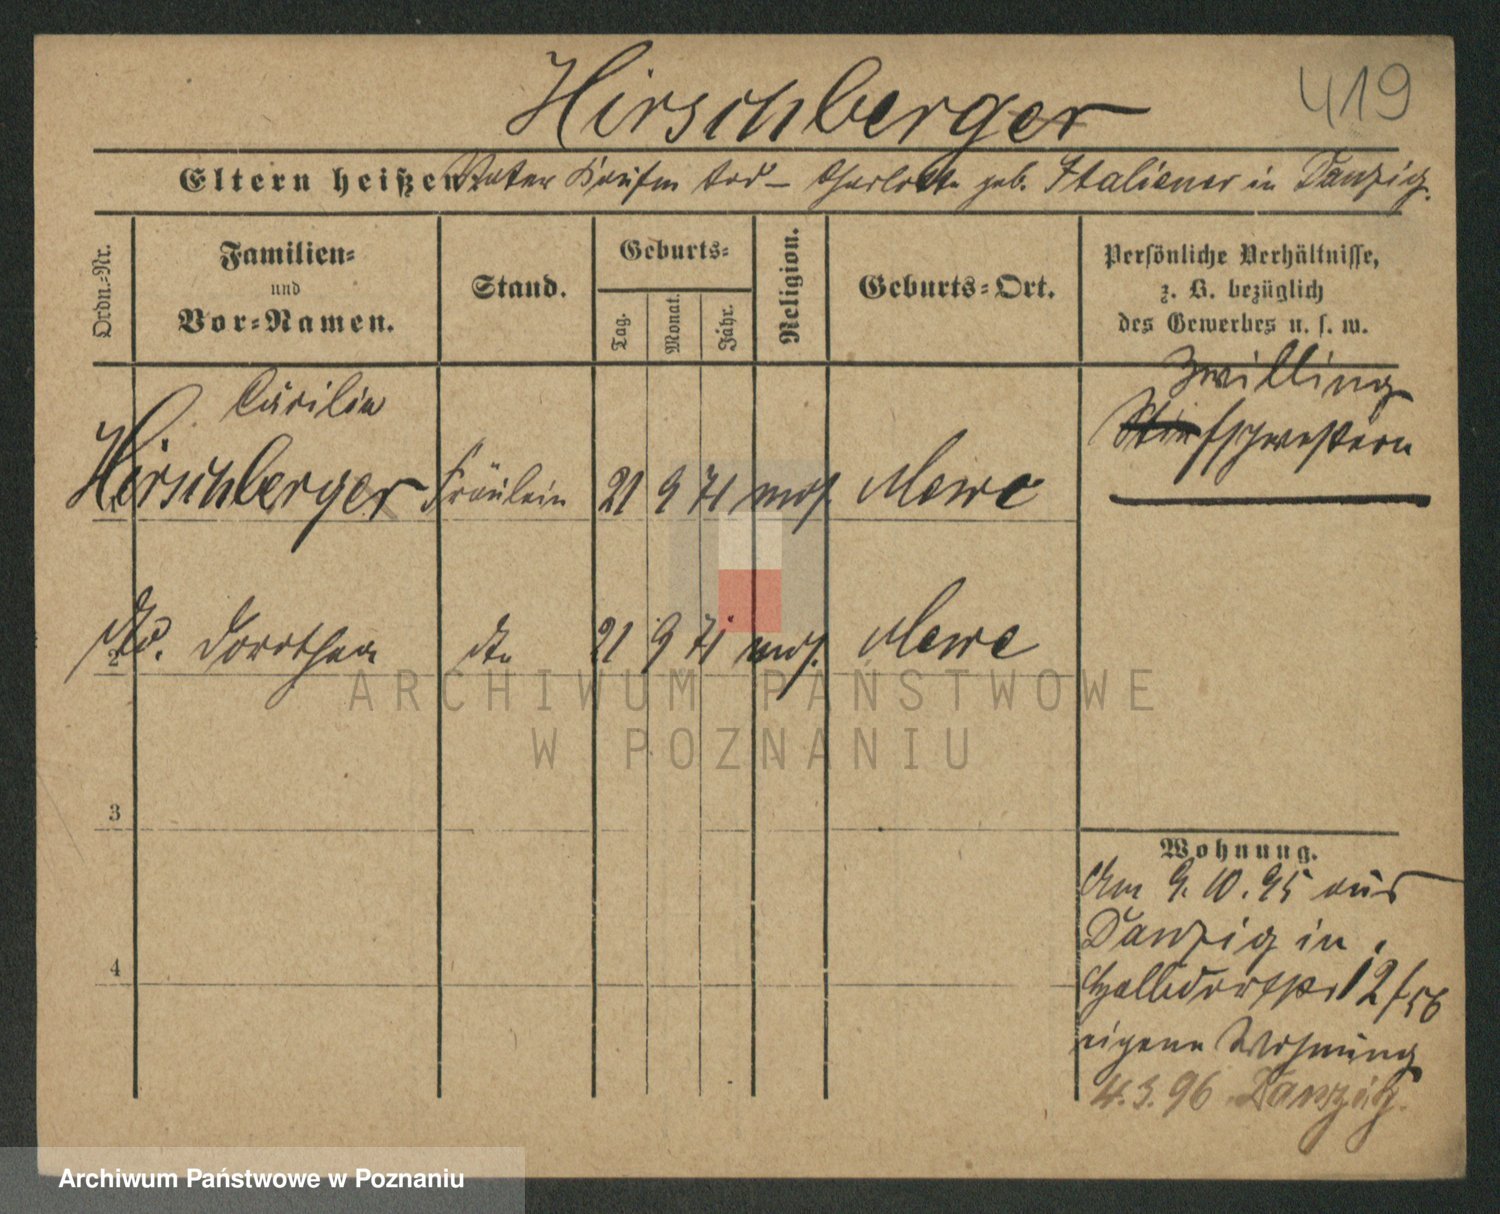 Hirschberger
419
Eltern heißen Vater Kaufm tod – Charlotte geb. Italiener in Danzig.
Ordn.-Nr.
Familien-
und
Vor-Namen.
Stand.
Geburts-
Tag.
Monat.
Jahr.
Religion.
Geburts-Ort.
Persönliche Verhältnisse,
z. B. bezüglich
des Gewerbes u. s. w.
Cäcilie
Hirschberger Fräulein 21 9 71 mos. Mewe
Zwilling
schwestern
2 dto. Dorothea dto 21 9 71 mos. Mewe
3
4
Wohnung.
Am 9.10.95 aus
Danzig in
12
eigene Wohnung
4.3.96 Danzig.
ARCHIWUM PAŃSTWOWE
W POZNANIU
Archiwum Państwowe w Poznaniu